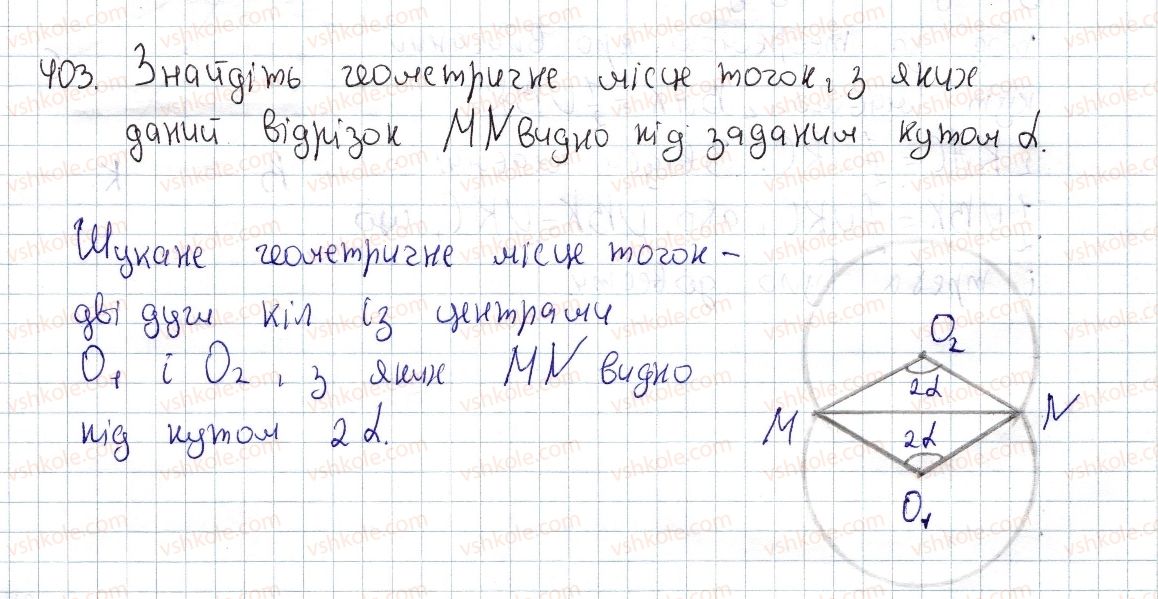 403. Знайдіть геометричне місце точок, з яких
даний відрізок MN видно під заданим кутом α.
Шукане геометричне місце точок –
дві дуги кіл із центрами
O₁ і O₂, з яких MN видно
під кутом 2α.
O₂
2α
M
N
2α
O₁